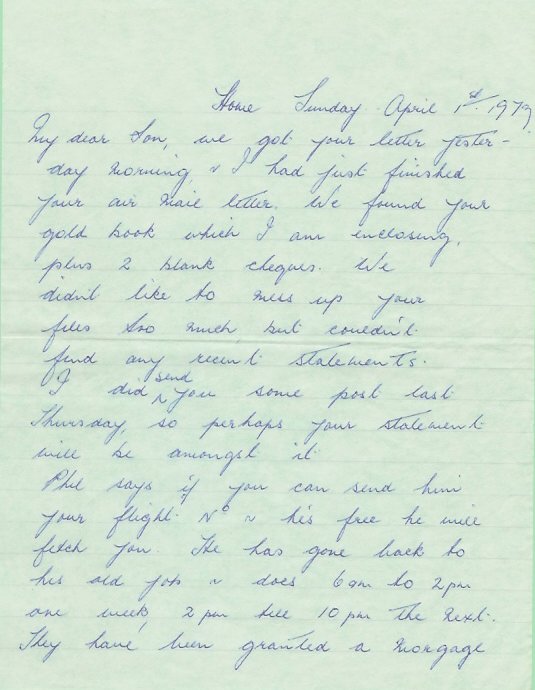 Home Sunday April 1st. 1979
My dear Son, we got your letter yester-
day morning ~ I had just finished
your air mail letter. We found your
gold book which I am enclosing,
plus 2 blank cheques. We
didn't like to mess up your
files too much but couldn't
find any recent statements.
I did send you some post last
Thursday, so perhaps your statement
will be amongst it
Phil says if you can send him
your flight No ~ he's free he will
fetch you. He has gone back to
his old job ~ does 6am to 2pm
one week, 2pm till 10pm the next.
They have been granted a morgage